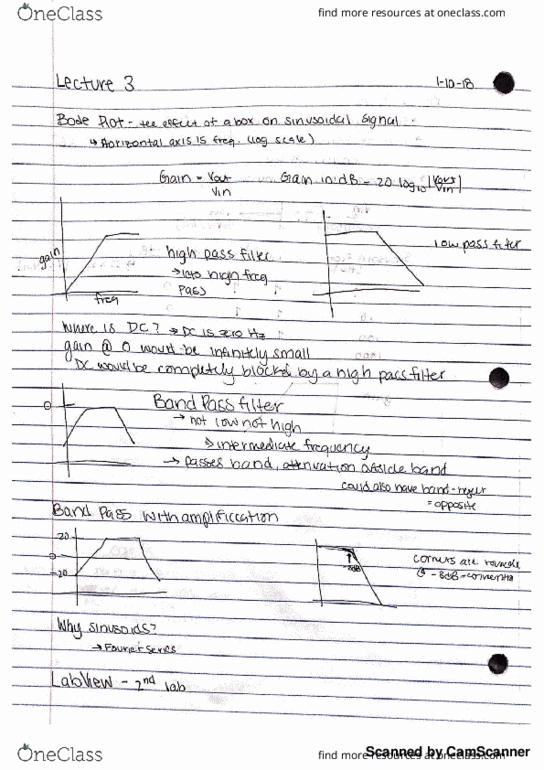 OneClass
find more resources at oneclass.com
Lecture 3
1-10-18
Bode Plot - the effect of a box on sinusoidal signal
↳ Horizontal axis is freq. (log scale)
Gain = Vout/Vin
Gain in dB = 20 log10 |Vout/Vin|
gain
freq
high pass filter
→ high freq
pass
low pass filter
Where is DC? → DC is zero Hz
gain @ 0 would be infinitely small
DC would be completely blocked by a high pass filter
0
Band Pass filter
→ not low not high
→ intermediate frequency
→ passes band, attenuation outside band
could also have band-reject
= opposite
Band Pass with amplificcation
20
0
-20
-3dB
corners are rounded
-3dB
Why sinusoids?
→ Fourier Series
LabView - 2nd lab
OneClass
find more resources at oneclass.com
Scanned by CamScanner